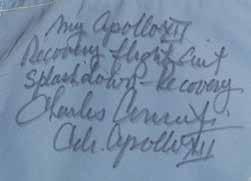 My Apollo XII
Recovery flight suit
Splashdown - Recovery
Charles Conrad Jr.
Cdr. Apollo XII